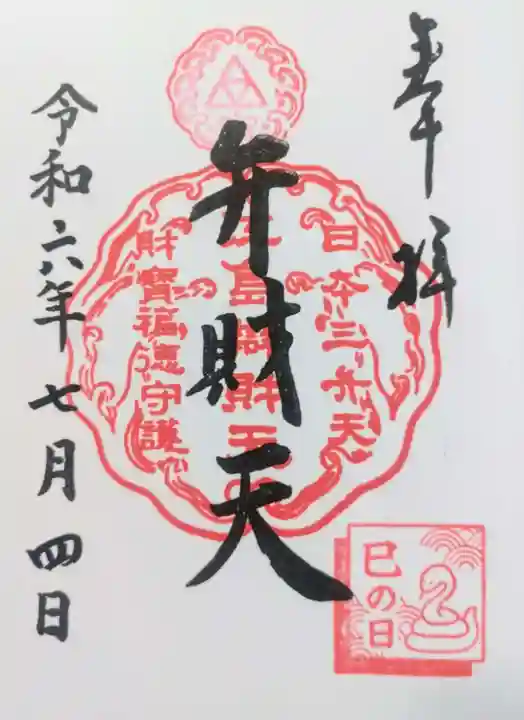 奉拝
日本三弁天
島辨財天
財寶福徳守護
弁財天
令和六年七月四日
巳の日